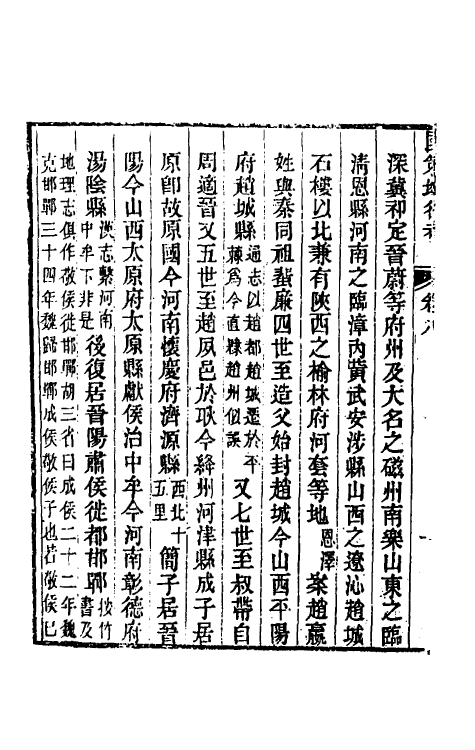 深冀祁定晉蔚等府州及大名之磁州南樂山東之臨
清恩縣河南之臨漳內黄武安涉縣山西之遼沁趙城
石樓以北兼有陝西之榆林府河套等地恩澤案趙嬴
姓與秦同祖蜚廉四世至造父始封趙城今山西平陽
府趙城縣通志以趙都趙城遷於平棘爲今直隸趙州似誤又七世至叔帶自
周適晉又五世至趙夙邑於耿今絳州河津縣成子居
原卽故原國今河南懷慶府濟源縣西北十五里簡子居晉
陽今山西太原府太原縣獻侯治中牟今河南彰德府
湯陰縣漢志繫河南中牟下非是後復居晉陽肅侯徙都邯鄲按竹書及
地理志俱作敬侯徙邯鄲胡三省曰成侯二十二年魏
克邯鄲三十四年魏歸邯鄲成侯敬侯子也若敬侯已